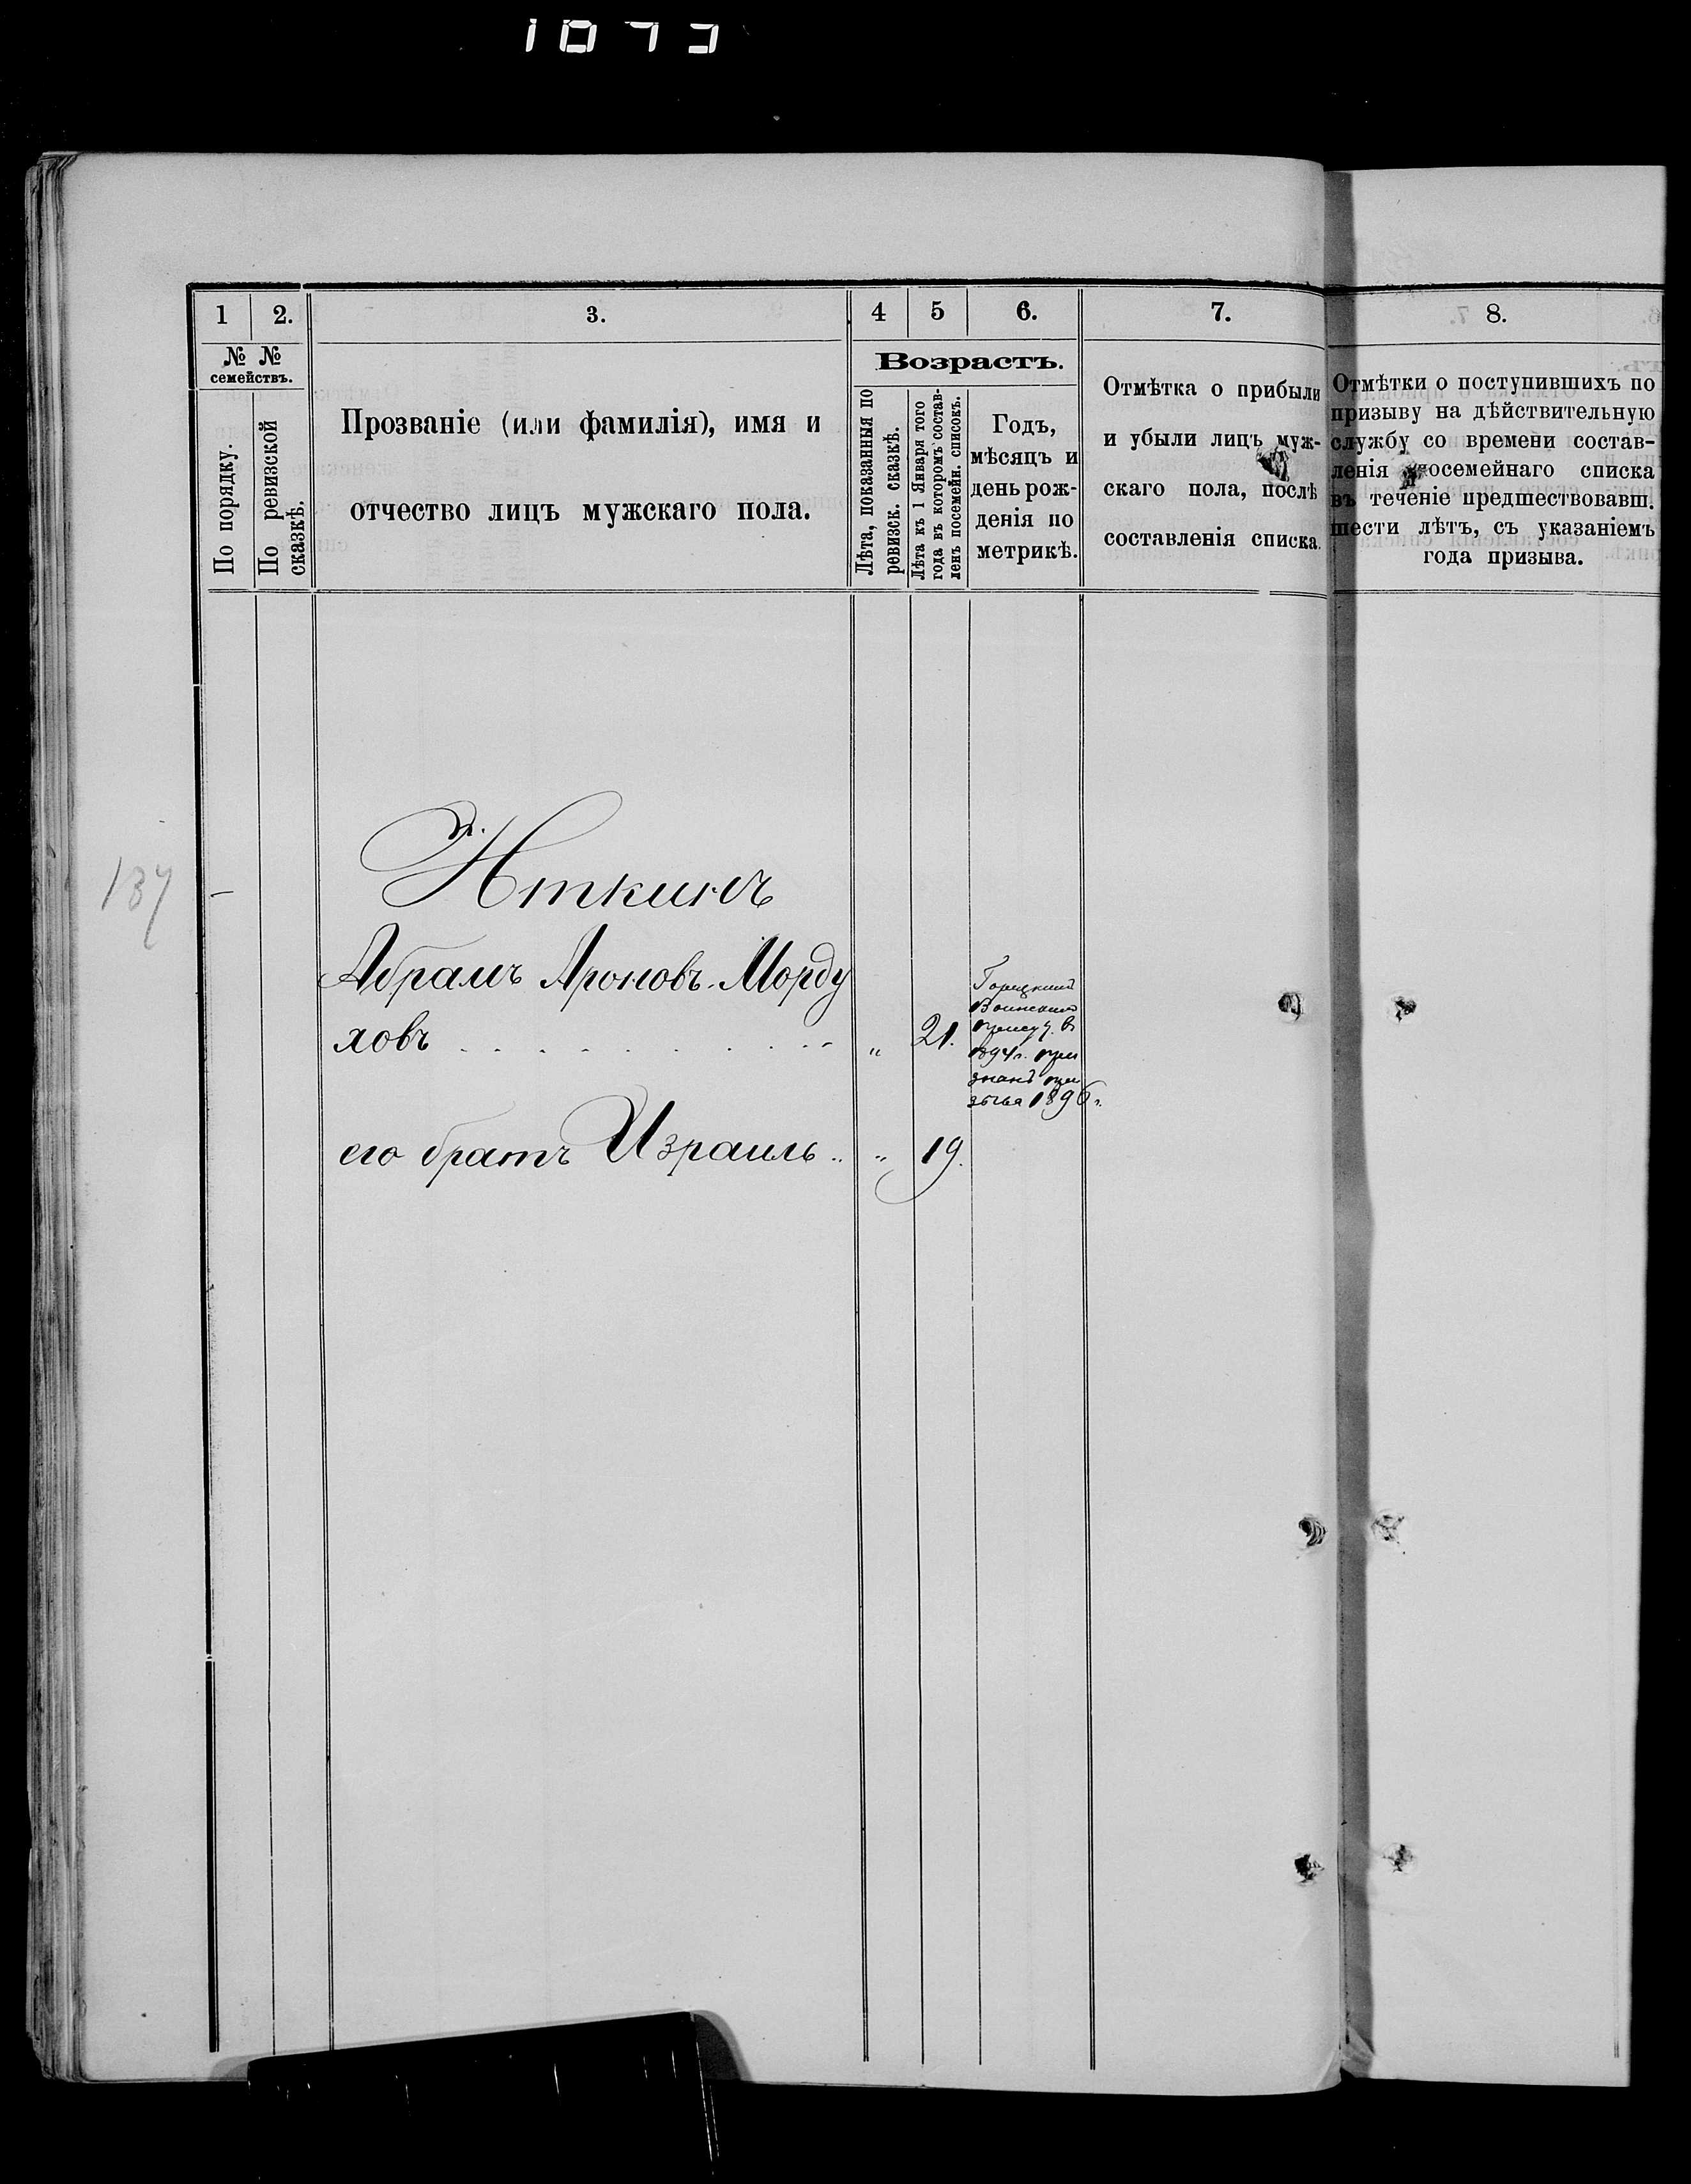 1 2. 3. 4 5 6. 7. 8.
№ № семействъ.
По порядку.
По ревизской сказкѣ.
Прозваніе (или фамилія), имя и
отчество лицъ мужскаго пола.
Возрастъ.
Лѣта, показанныя по
ревизск. сказкѣ.
Лѣта къ 1 Января того
года въ которомъ состав-
ленъ посемейн. списокъ.
Годъ,
мѣсяцъ и
день рож-
денія по
метрикѣ.
Отмѣтка о прибыли
и убыли лицъ муж-
скаго пола, послѣ
составленія списка.
Отмѣтки о поступившихъ по
призыву на дѣйствительную
службу со времени состав-
ленія посемейнаго списка
въ теченіе предшествовавш.
шести лѣтъ, съ указаніемъ
года призыва.
137
Иткинъ
Абрамъ Ароновъ-Морду
ховъ " 21.
Горецкимъ
Воинским
присут. в
1894г. при
знанъ при
зыва 1896г.
его братъ Израиль " 19.